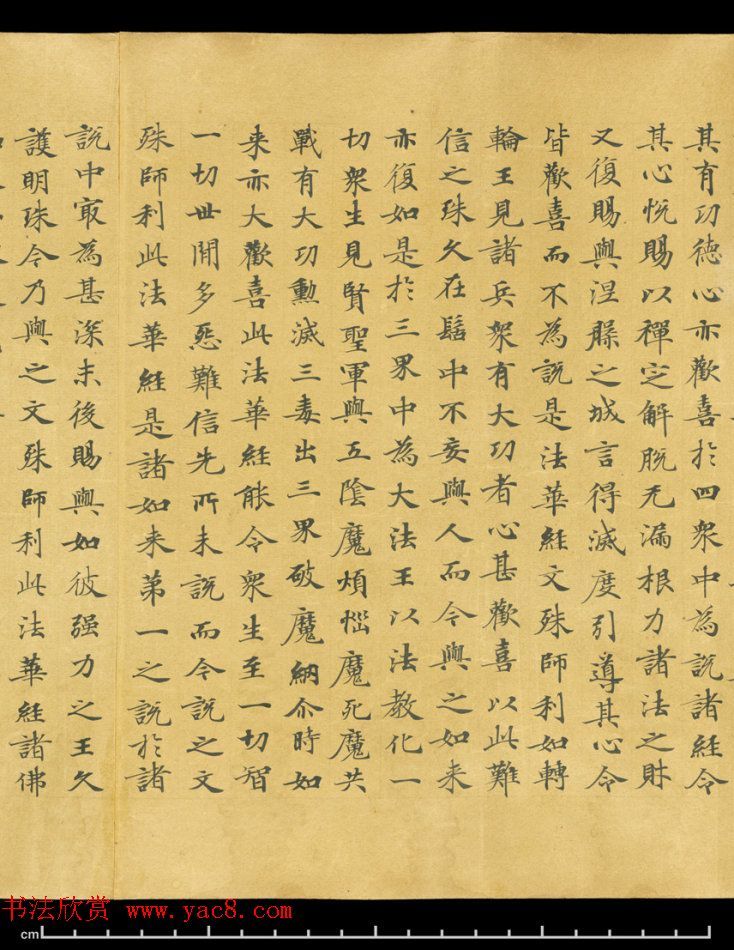 其有功德心亦歡喜於四衆中為說諸經令
其心恱賜以禪定解脫无漏根力諸法之財
又復賜與涅槃之城言得滅度引導其心令
皆歡喜而不為說是法華經文殊師利如轉
輪王見諸兵衆有大功者心甚歡喜以此難
信之珠久在髻中不妄與人而今與之如来
亦復如是於三界中為大法王以法教化一
切衆生見賢聖軍與五陰魔煩惱魔死魔共
戰有大功勳滅三毒出三界破魔網尒時如
来亦大歡喜此法華經能令衆生至一切智
一切世閒多怨難信先所未說而今說之文
殊師利此法華經是諸如来第一之說於諸
說中㝡為甚深末後賜與如彼强力之王久
護明珠今乃與之文殊師利此法華經諸佛
书法欣赏 www.yac8.com
cm